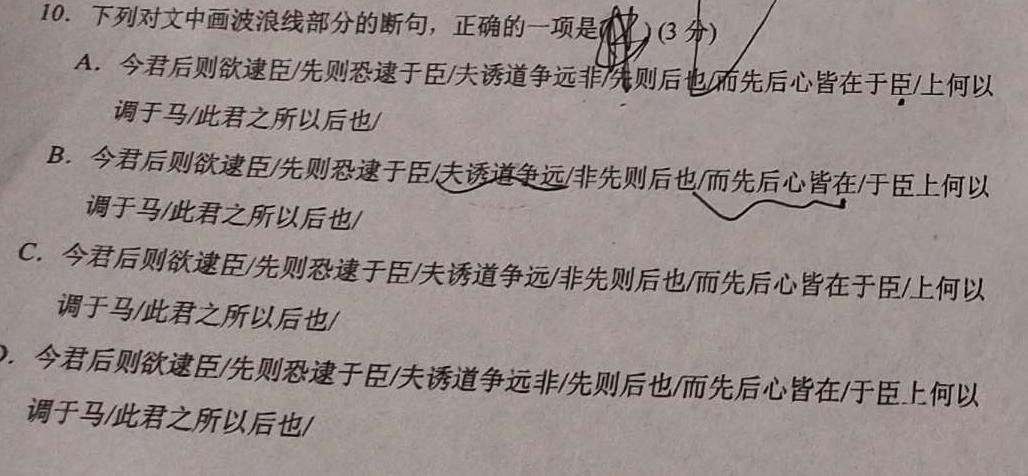 10. 下列对文中画波浪线部分的断句，正确的一项是( )(3分)
A. 今君后则欲逮臣/先则恐逮于臣/夫诱道争远非/先则后也/而先后心皆在于臣/上何以
调于马/此君之所以后也/
B. 今君后则欲逮臣/先则恐逮于臣/夫诱道争远/非先则后也/而先后心皆在/于臣上何以
调于马/此君之所以后也/
C. 今君后则欲逮臣/先则恐逮于臣/夫诱道争远/非先则后也/而先后心皆在于臣/上何以
调于马/此君之所以后也/
D. 今君后则欲逮臣/先则恐逮于臣/夫诱道争远非/先则后也/而先后心皆在/于臣上何以
调于马/此君之所以后也/